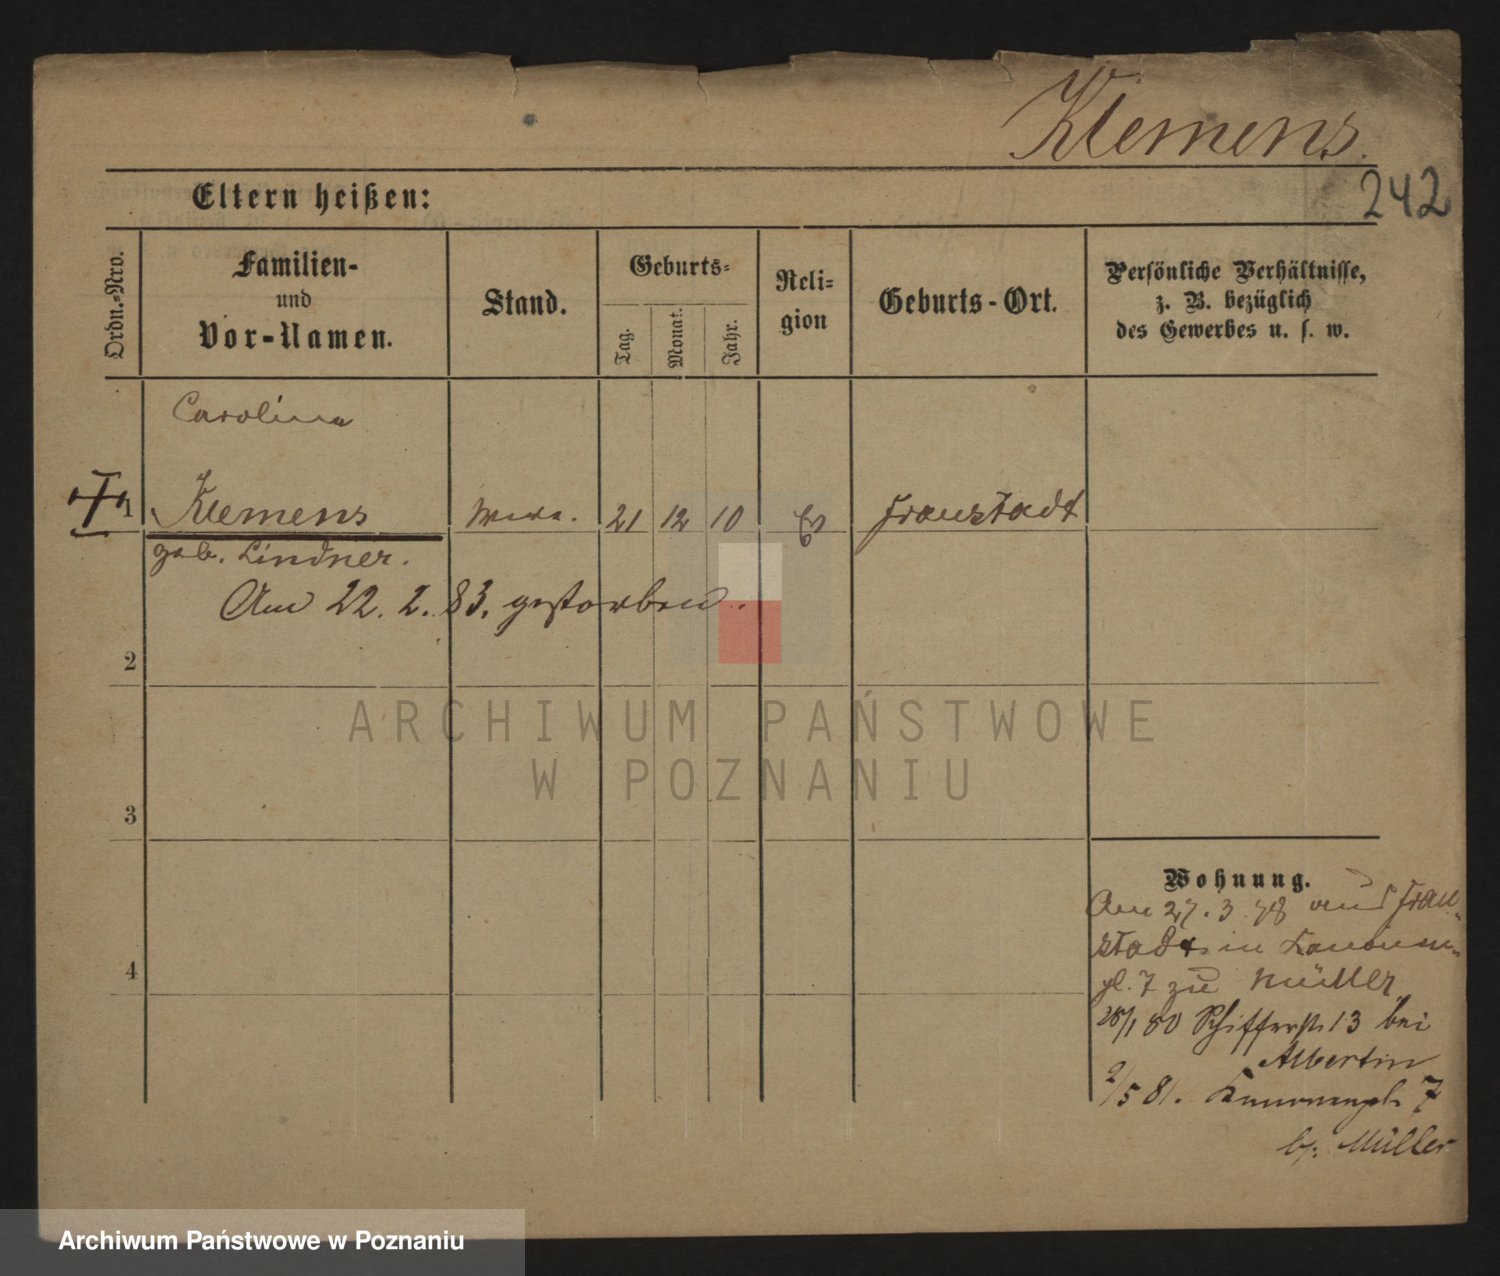 Klemens.
242
Eltern heißen:
Ordn.-Nro.
Familien-
und
Vor-Namen.
Stand.
Geburts-
Tag.
Monat.
Jahr.
Reli-
gion
Geburts-Ort.
Persönliche Verhältnisse,
z. B. bezüglich
des Gewerbes u. s. w.
Carolina
1 Klemens 21 12 10 Ev Fraustadt
geb. Lindner.
Am 22. 2. 83. gestorben.
2
ARCHIWUM PAŃSTWOWE
W POZNANIU
3
Wohnung.
Am 27. 3. 78 aus Frau-
stadt in Kanonen-
pl. 7 zu Müller
28/1 80 Schifferstr. 13 bei
Albertin
2/5 81. Kanonenpl. 7
b. Müller
4
Archiwum Państwowe w Poznaniu